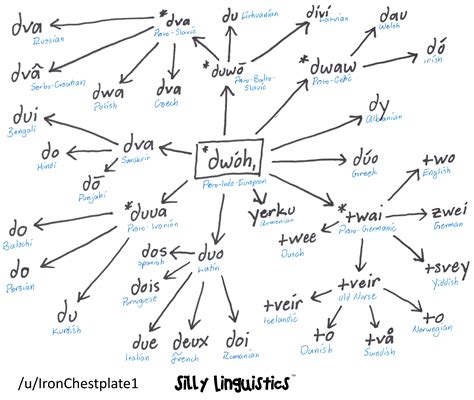 dva
Russian
*dva
Proto-Slavic
du
Lithuanian
divi
Latvian
dau
Welsh
dó
Irish
dvâ
Serbo-Croatian
dwa
Polish
dva
Czech
*duwō
Proto-Balto-Slavic
*dwaw
Proto-Celtic
dui
Bengali
dva
Sanskrit
do
Hindi
dō
Punjabi
*dwóh₁
Proto-Indo-European
dy
Albanian
dúo
Greek
two
English
*duua
Proto-Iranian
do
Balochi
do
Persian
du
Kurdish
yerku
Armenian
*twai
Proto-Germanic
zwei
German
twee
Dutch
tsvey
Yiddish
dos
Spanish
dois
Portugese
duo
Latin
tveir
Icelandic
tveir
Old Norse
to
Norwegian
due
Italian
deux
French
doi
Romanian
to
Danish
två
Swedish
/u/IronChestplate1
Silly Linguistics™